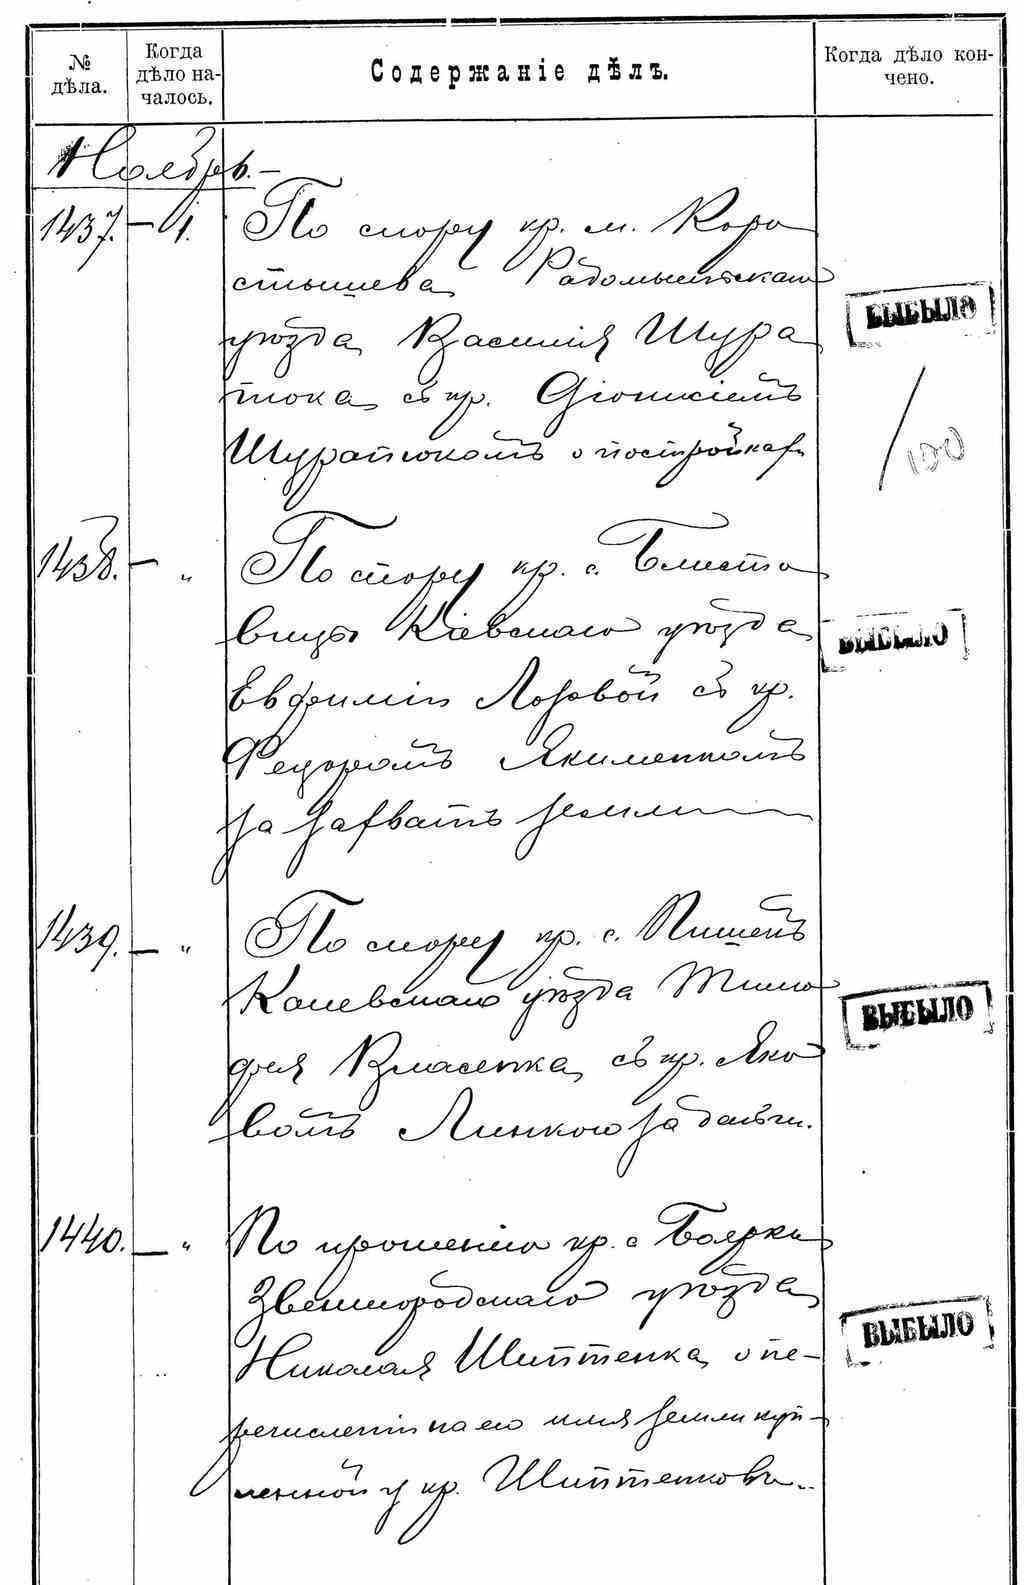 № дѣла.
Когда дѣло началось.
Содержаніе дѣлъ.
Когда дѣло кончено.
Ноябрь.-
1437. - 1. По спору кр. м. Коро
стышева Радомысльскаго
уѣзда Василія Шура
тюка съ кр. Діонисіемъ
Шуратюкомъ о постройках
ВЫБЫЛО
1438. - „ По спору кр. с. Блиста
вицы Кіевскаго уѣзда
Евфиміи Лозовой съ кр.
Федоромъ Якименкомъ
за захватъ земли
ВЫБЫЛО
1439. - „ По спору кр. с. Пишекъ
Каневскаго уѣзда Тимо
фея Власенка съ кр. Яко
вомъ Линкою за деньги.
ВЫБЫЛО
1440. - „ По прошенію кр. с Боярки
Звенигородскаго уѣзда
Николая Шиптенка о пе-
речисленіи на его имя земли куп-
ленной у кр. Шиптенковъ..
ВЫБЫЛО